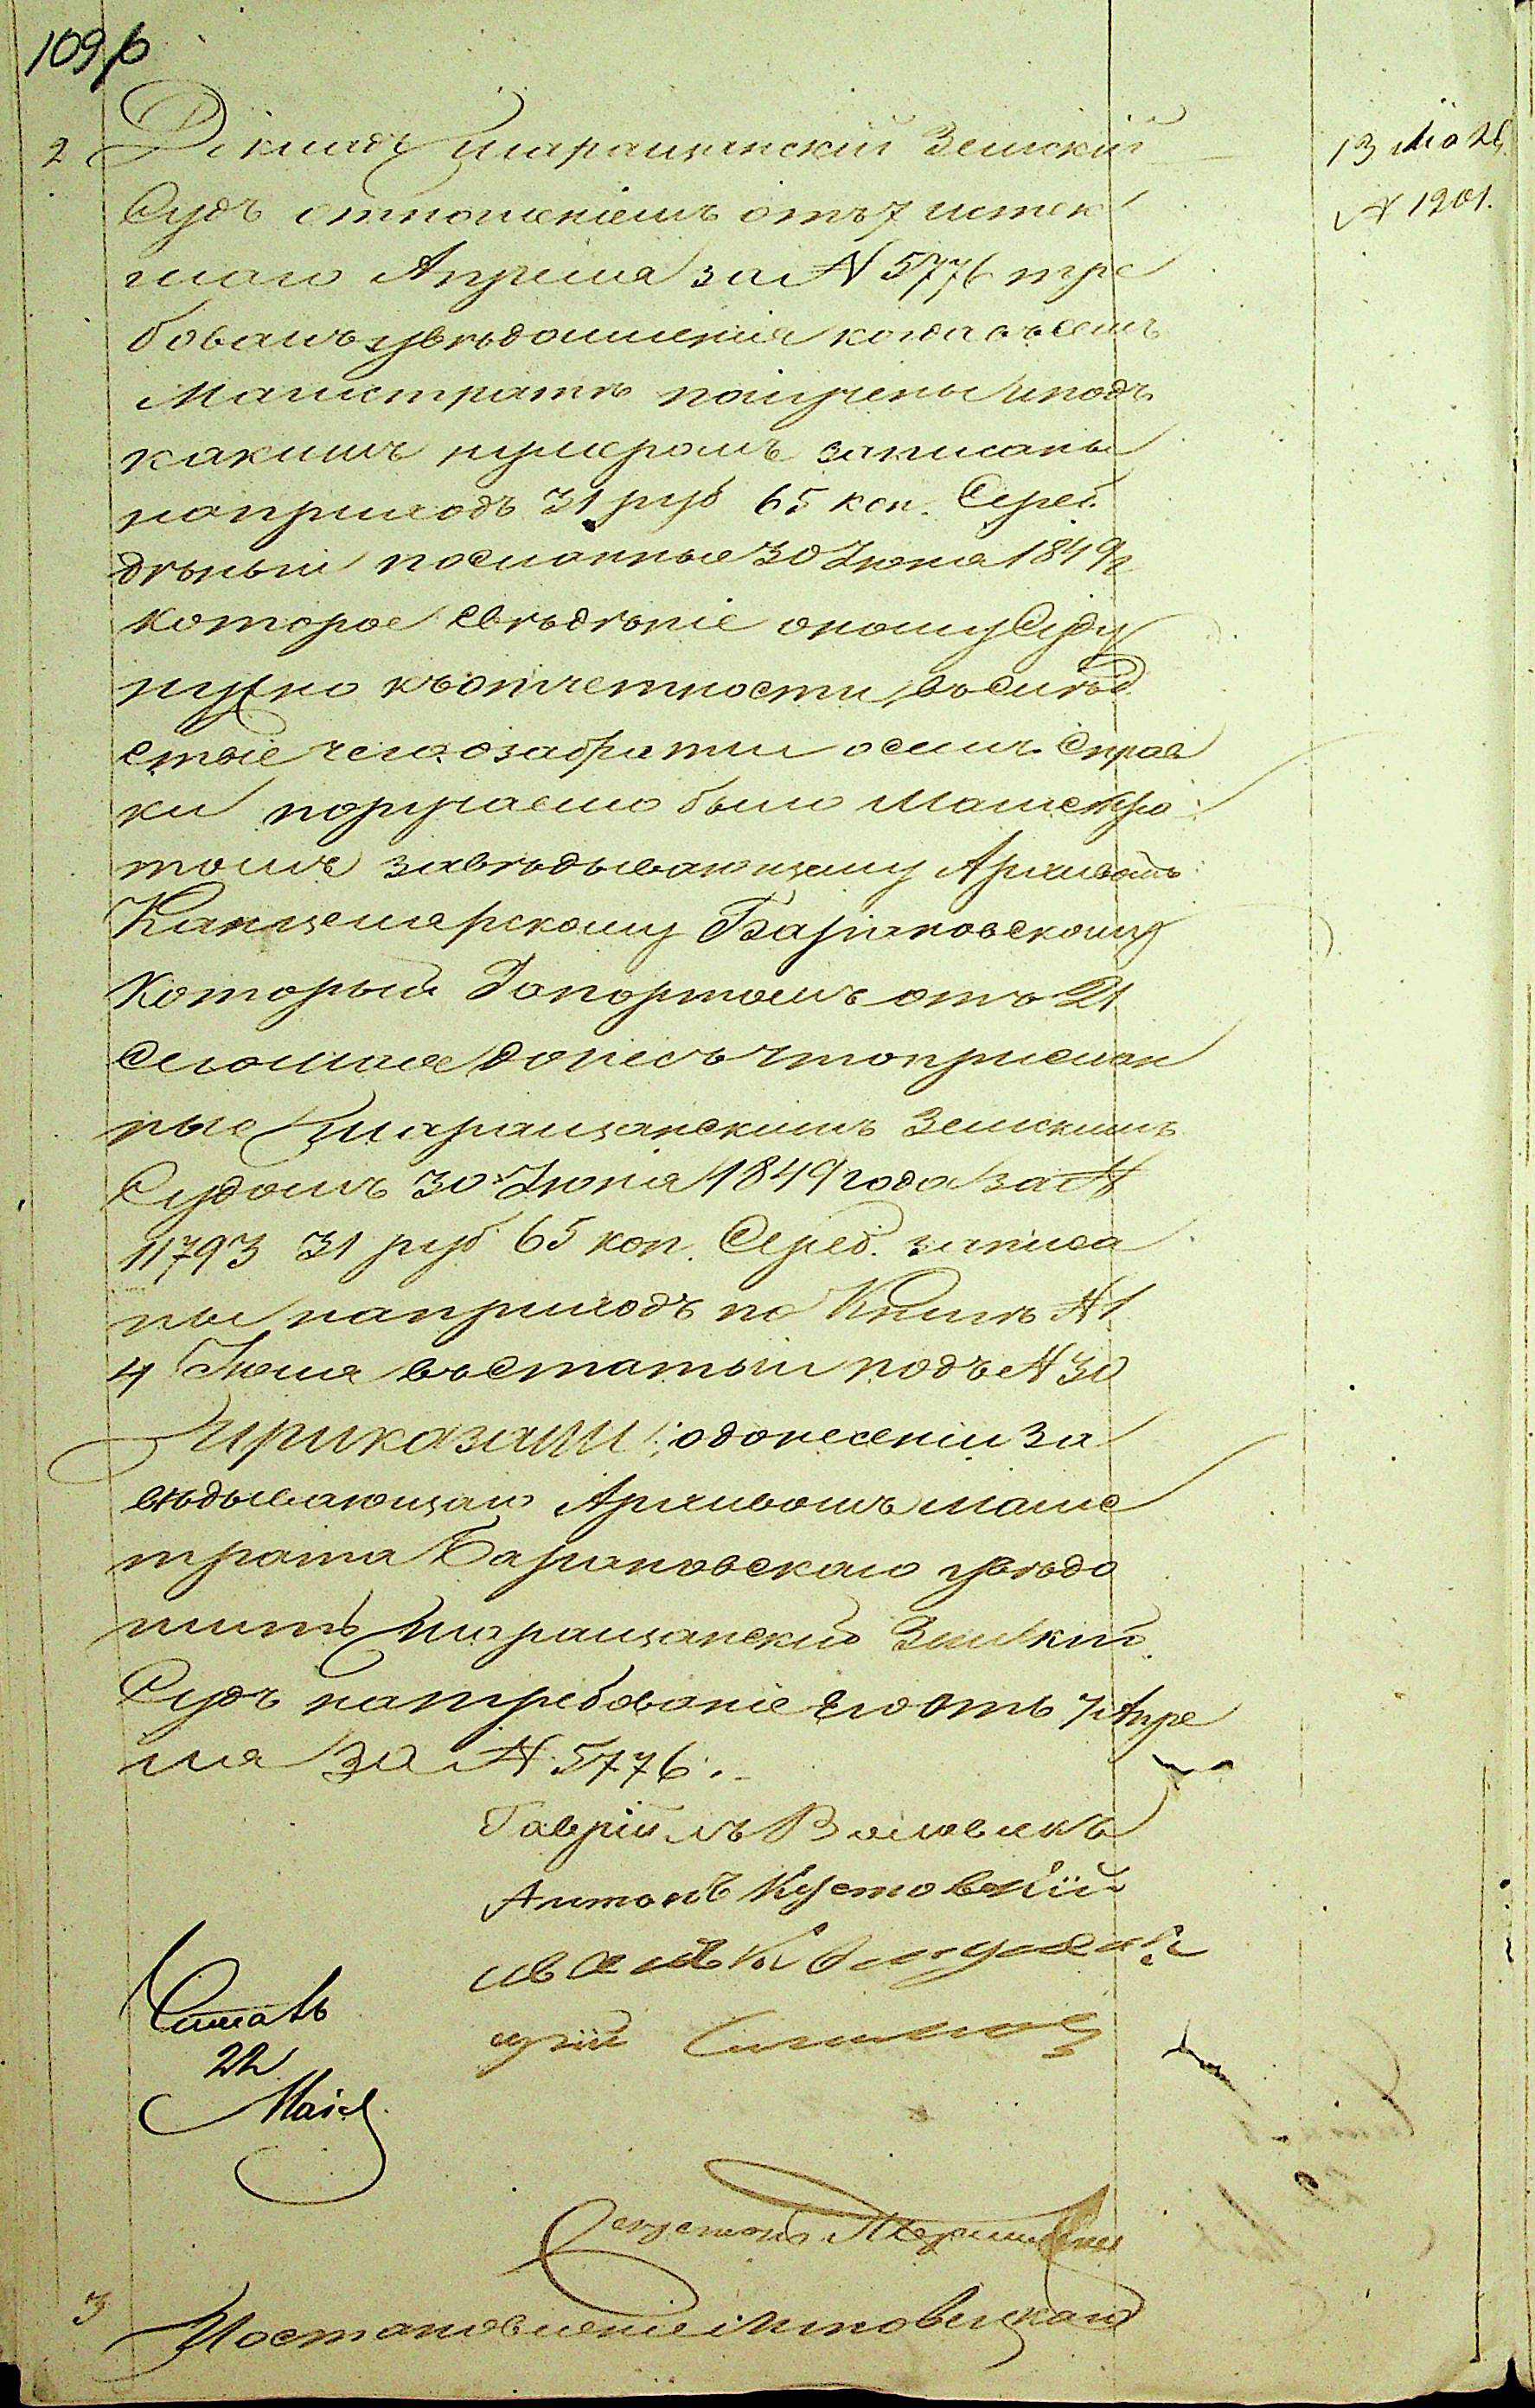 109 б
2 Докладъ Таращанскій Земскій
Судъ отношеніемъ отъ 7 истек
шаго Апреля за N 5776 тре
бовалъ увѣдомленія когда въ семъ
Магистратѣ получены и подъ
какимъ нумеромъ записаны
на приходъ 31 руб 65 коп. Сереб.
дѣньги посланные 30 Іюня 1849 г
которое свѣдѣніе оному Суду
нужно къ отчетности, въ слѣд
ствіе чего озабратіи о семъ Справ
ки поручаемо было Магистра
томъ завѣдывающему Архивомъ
Канцелярскому Барановскому
который Рапортомъ отъ 21
сего мая донесъ что прислан
ные Таращанскимъ Земскимъ
Судомъ 30 Іюня 1849 года за N
11793 31 руб 65 коп. Сереб. записа
ны на приходъ по Книгѣ N 1
4 Іюля въ Статьи подъ N 30
Приказали: о донесеніи за
вѣдывающаго Архивомъ магис
трата Барановскаго увѣдо
мить Таращанскій Земскій
Судъ на требованіе его отъ 7 Апре
ля за N 5776.
13 Мая
N 1901.
Гавріилъ Воловикъ
Антонъ Кустовскій
Иванъ
22
Мая
3 Постановленіе